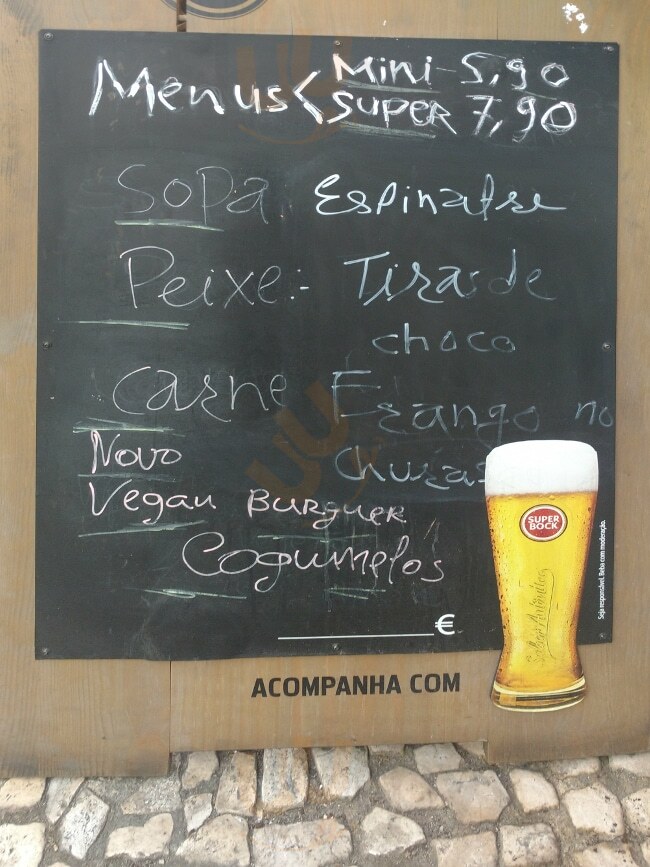 Menus < Mini - 5,90
SUPER 7,90
Sopa Espinafre
Peixe:- Tiras de
choco
Carne Frango no
Churas
Novo
Vegan Burguer
Cogumelos
€
SUPER BOCK
Sabor Autêntico
Seja responsável. Beba com moderação.
ACOMPANHA COM